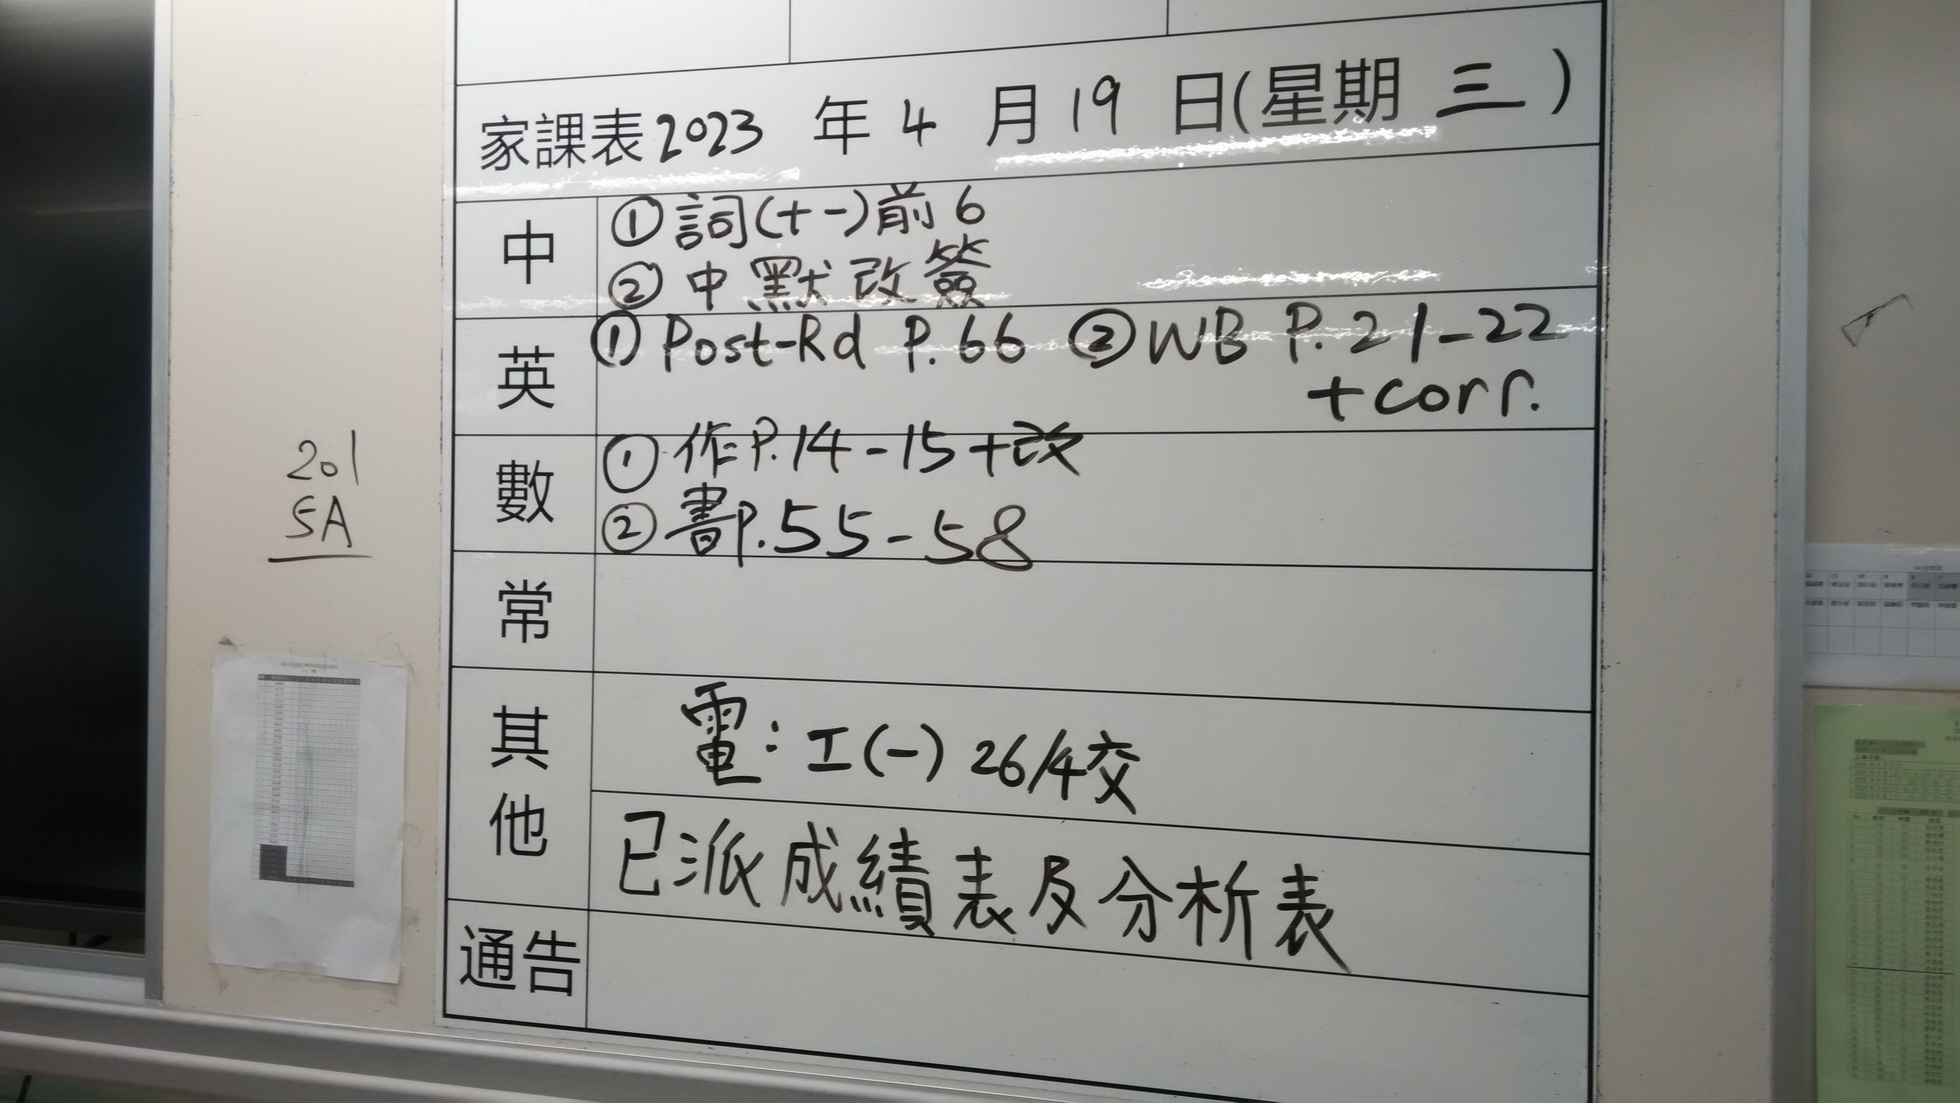 家課表2023 年 4 月 19 日(星期 三 )
中
①詞(十一)前6
②中默改簽
英
①Post-Rd P.66 ②WB P.21-22
+corr.
數
①作P.14-15+改
②書P.55-58
常
其他
電:工(一) 26/4交
已派成績表及分析表
通告
201
5A